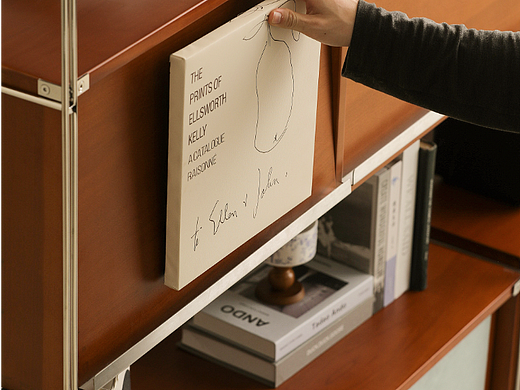 THE
PRINTS OF
ELLSWORTH
KELLY
A CATALOGUE
RAISONNE
to Ellen & John
ANDO
Tadao Ando